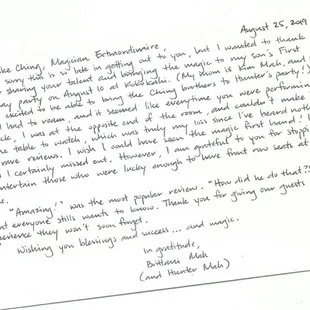 August 25, 2019
ke Ching, Magician Extraordinaire,
sorry this is so late in getting out to you, but I wanted to thank
sharing your talent and bringing the magic to my son's First
ay party on August 10 at (My mom is Kim Mach, and
excited to be able to bring the Ching brothers to Hunter's party!)
had to roam, and it seemed like everytime you were performing
k, I was at the opposite end of the room, and couldn't make
e table to watch, which was truly my loss since I've heard noth
rave reviews. I wish I could have seen the magic first hand! I
I certainly missed out. However, I am grateful to you for stoppi
ntertain those who were lucky enough to have front row seats at
e.
"Amazing!" was the most popular review. "How did he do that?!"
t everyone still wants to know. Thank you for giving our guests
perience they won't soon forget.
Wishing you blessings and success... and magic.
In gratitude,
Mah
(and Hunter Mah)